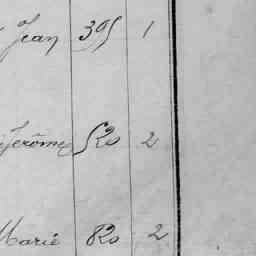 Jean 395 1
Jérôme 520 2
Marie 820 2